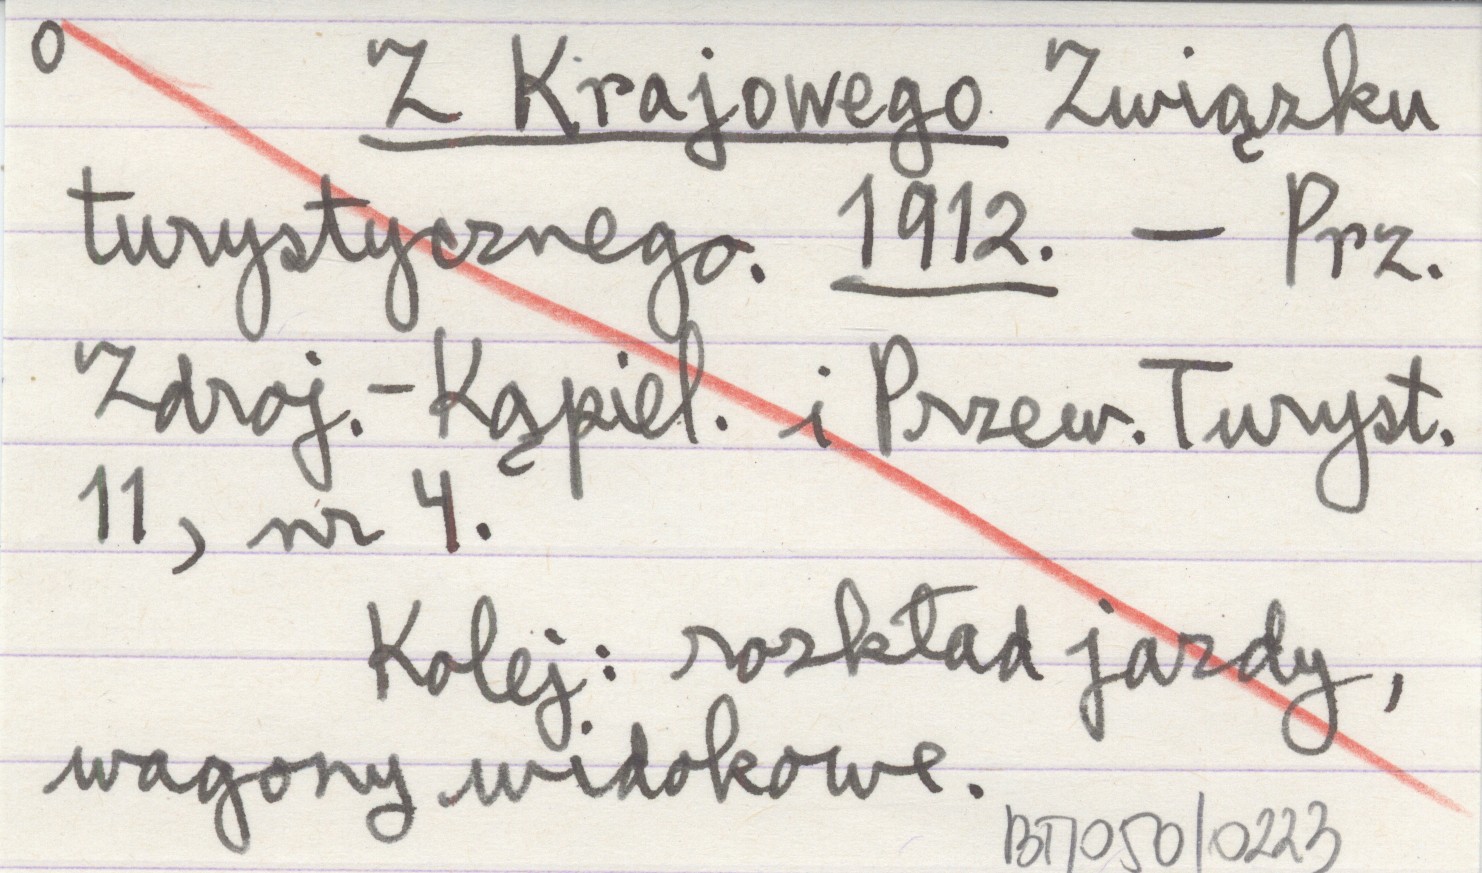 0 Z Krajowego Związku
turystycznego. 1912. — Prz.
Zdroj.-Kąpiel. i Przew. Turyst.
11, nr 4.
Kolej: rozkład jazdy,
wagony widokowe.